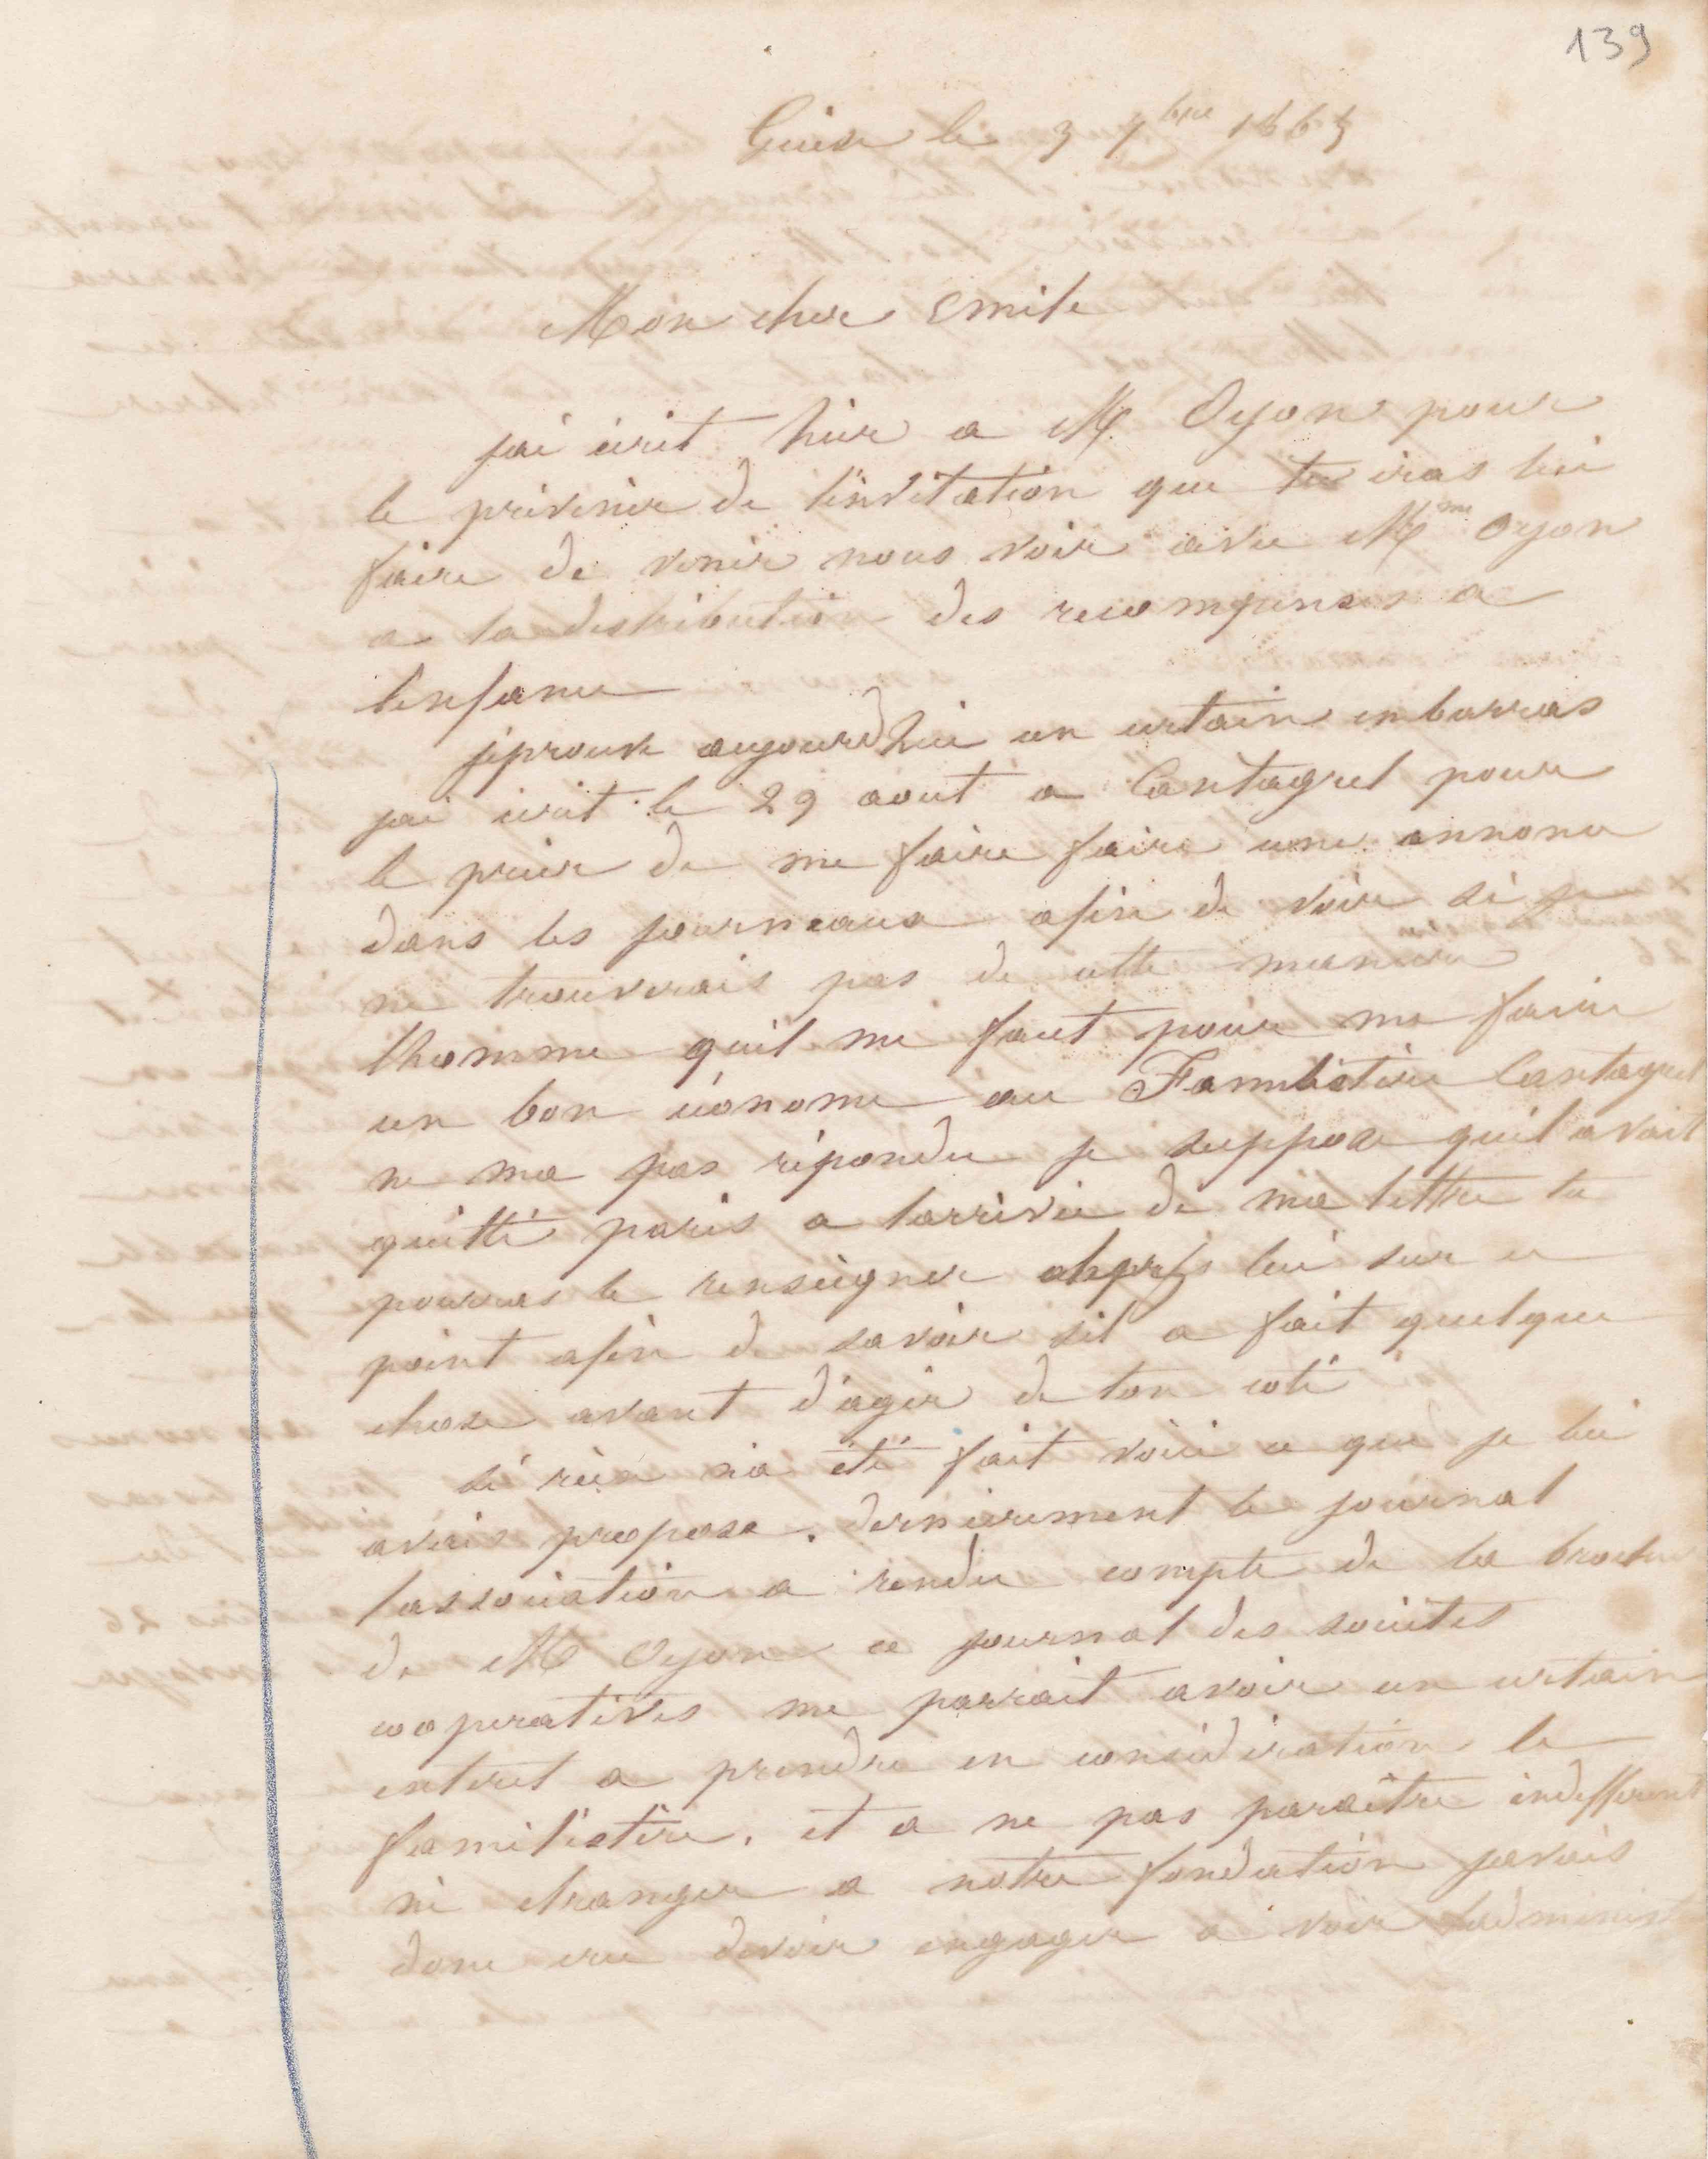 139
Guise le 3 7bre 1865
Mon cher Emile
jai ecrit hier a M. Oyon pour
le prévenir de linvitation que tu iras lui
faire de venir nous voir avec Mme Oyon
a la distribution des recompenses a
lenfance
jéprouve aujourdhui un certain embarras
jai ecrit le 29 aout a Cantagrel pour
le prier de me faire faire une annonce
dans les journeaux afin de voir si je
ne trouverais pas de cette maniere
lhomme quil me faut pour me faire
un bon économe au Familistère Cantagrel
ne ma pas répondu je suppose quil avait
quitté paris a larrivée de ma lettre tu
pourras te renseigner auprès lui sur ce
point afin de savoir sil a fait quelque
chose avant d'agir de ton coté
si rien na été fait voici ce que je lui
avais propose. dernierement le journal
lassociation a rendu compte de la brochure
de M Oyon ce journal des sociétés
cooperatives me parrait avoir un certain
interet a prendre en considération le
familistère. et a ne pas paraître indifferent
ni etranger a notre fondation javais
donc cru devoir engager a voir ladminist